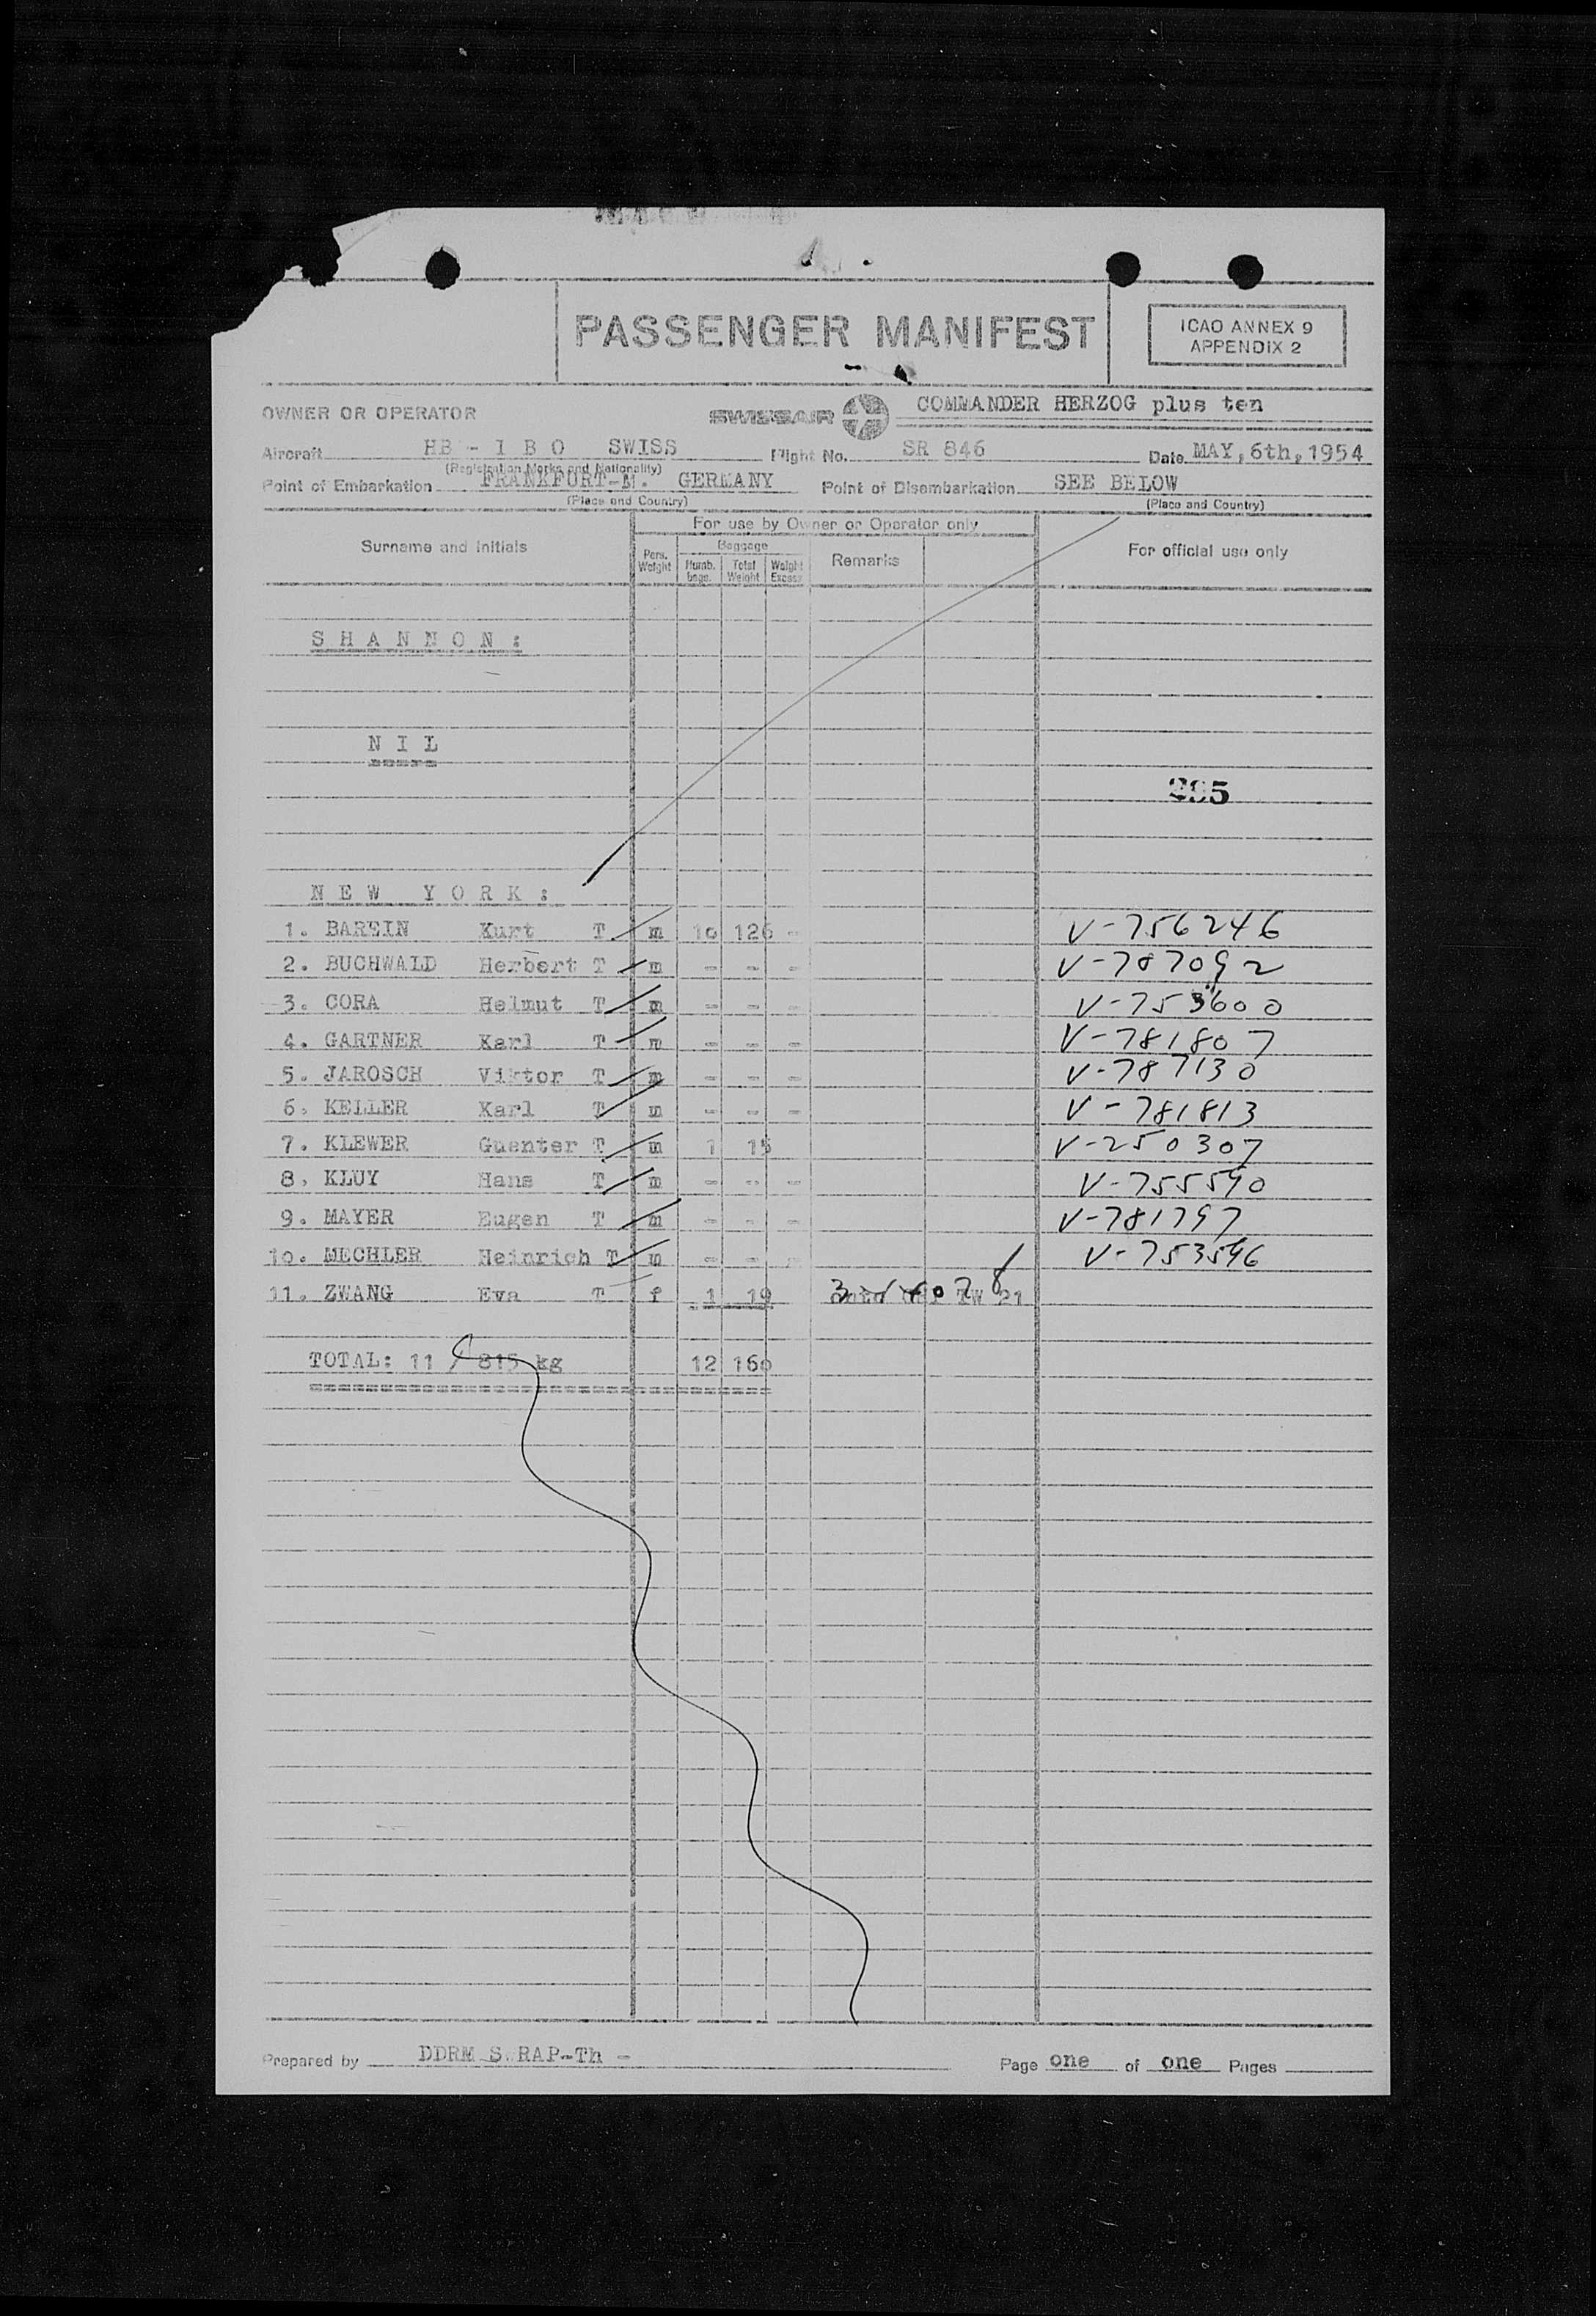 PASSENGER MANIFEST
ICAO ANNEX 9
APPENDIX 2
OWNER OR OPERATOR SWISSAIR COMMANDER HERZOG plus ten
Aircraft HB - I B O SWISS Flight No. SR 846 Date MAY, 6th, 1954
(Registration Marks and Nationality)
Point of Embarkation FRANKFURT-M. GERMANY Point of Disembarkation SEE BELOW
(Place and Country) (Place and Country)
For use by Owner or Operator only
Surname and Initials Pers. Weight Baggage Numb. bags. Total Weight Weight Excess Remarks For official use only
S H A N N O N :
N I L
=====
295
N E W Y O R K :
1. BAREIN Kurt T m 10 126 - V-756246
2. BUCHWALD Herbert T m - - - V-787092
3. CORA Helmut T m - - - V-753600
4. GARTNER Karl T m - - - V-781807
5. JAROSCH Viktor T m - - - V-787130
6. KELLER Karl T m - - - V-781813
7. KLEWER Guenter T m 1 15 V-250307
8. KLUY Hans T m - - - V-755590
9. MAYER Eugen T m - - - V-781797
10. MECHLER Heinrich T m - - - V-753596
11. ZWANG Eva T f 1 19 TW 21
TOTAL: 11 / 815 kg 12 160
Prepared by DDRM S. RAP-Th - Page one of one Pages